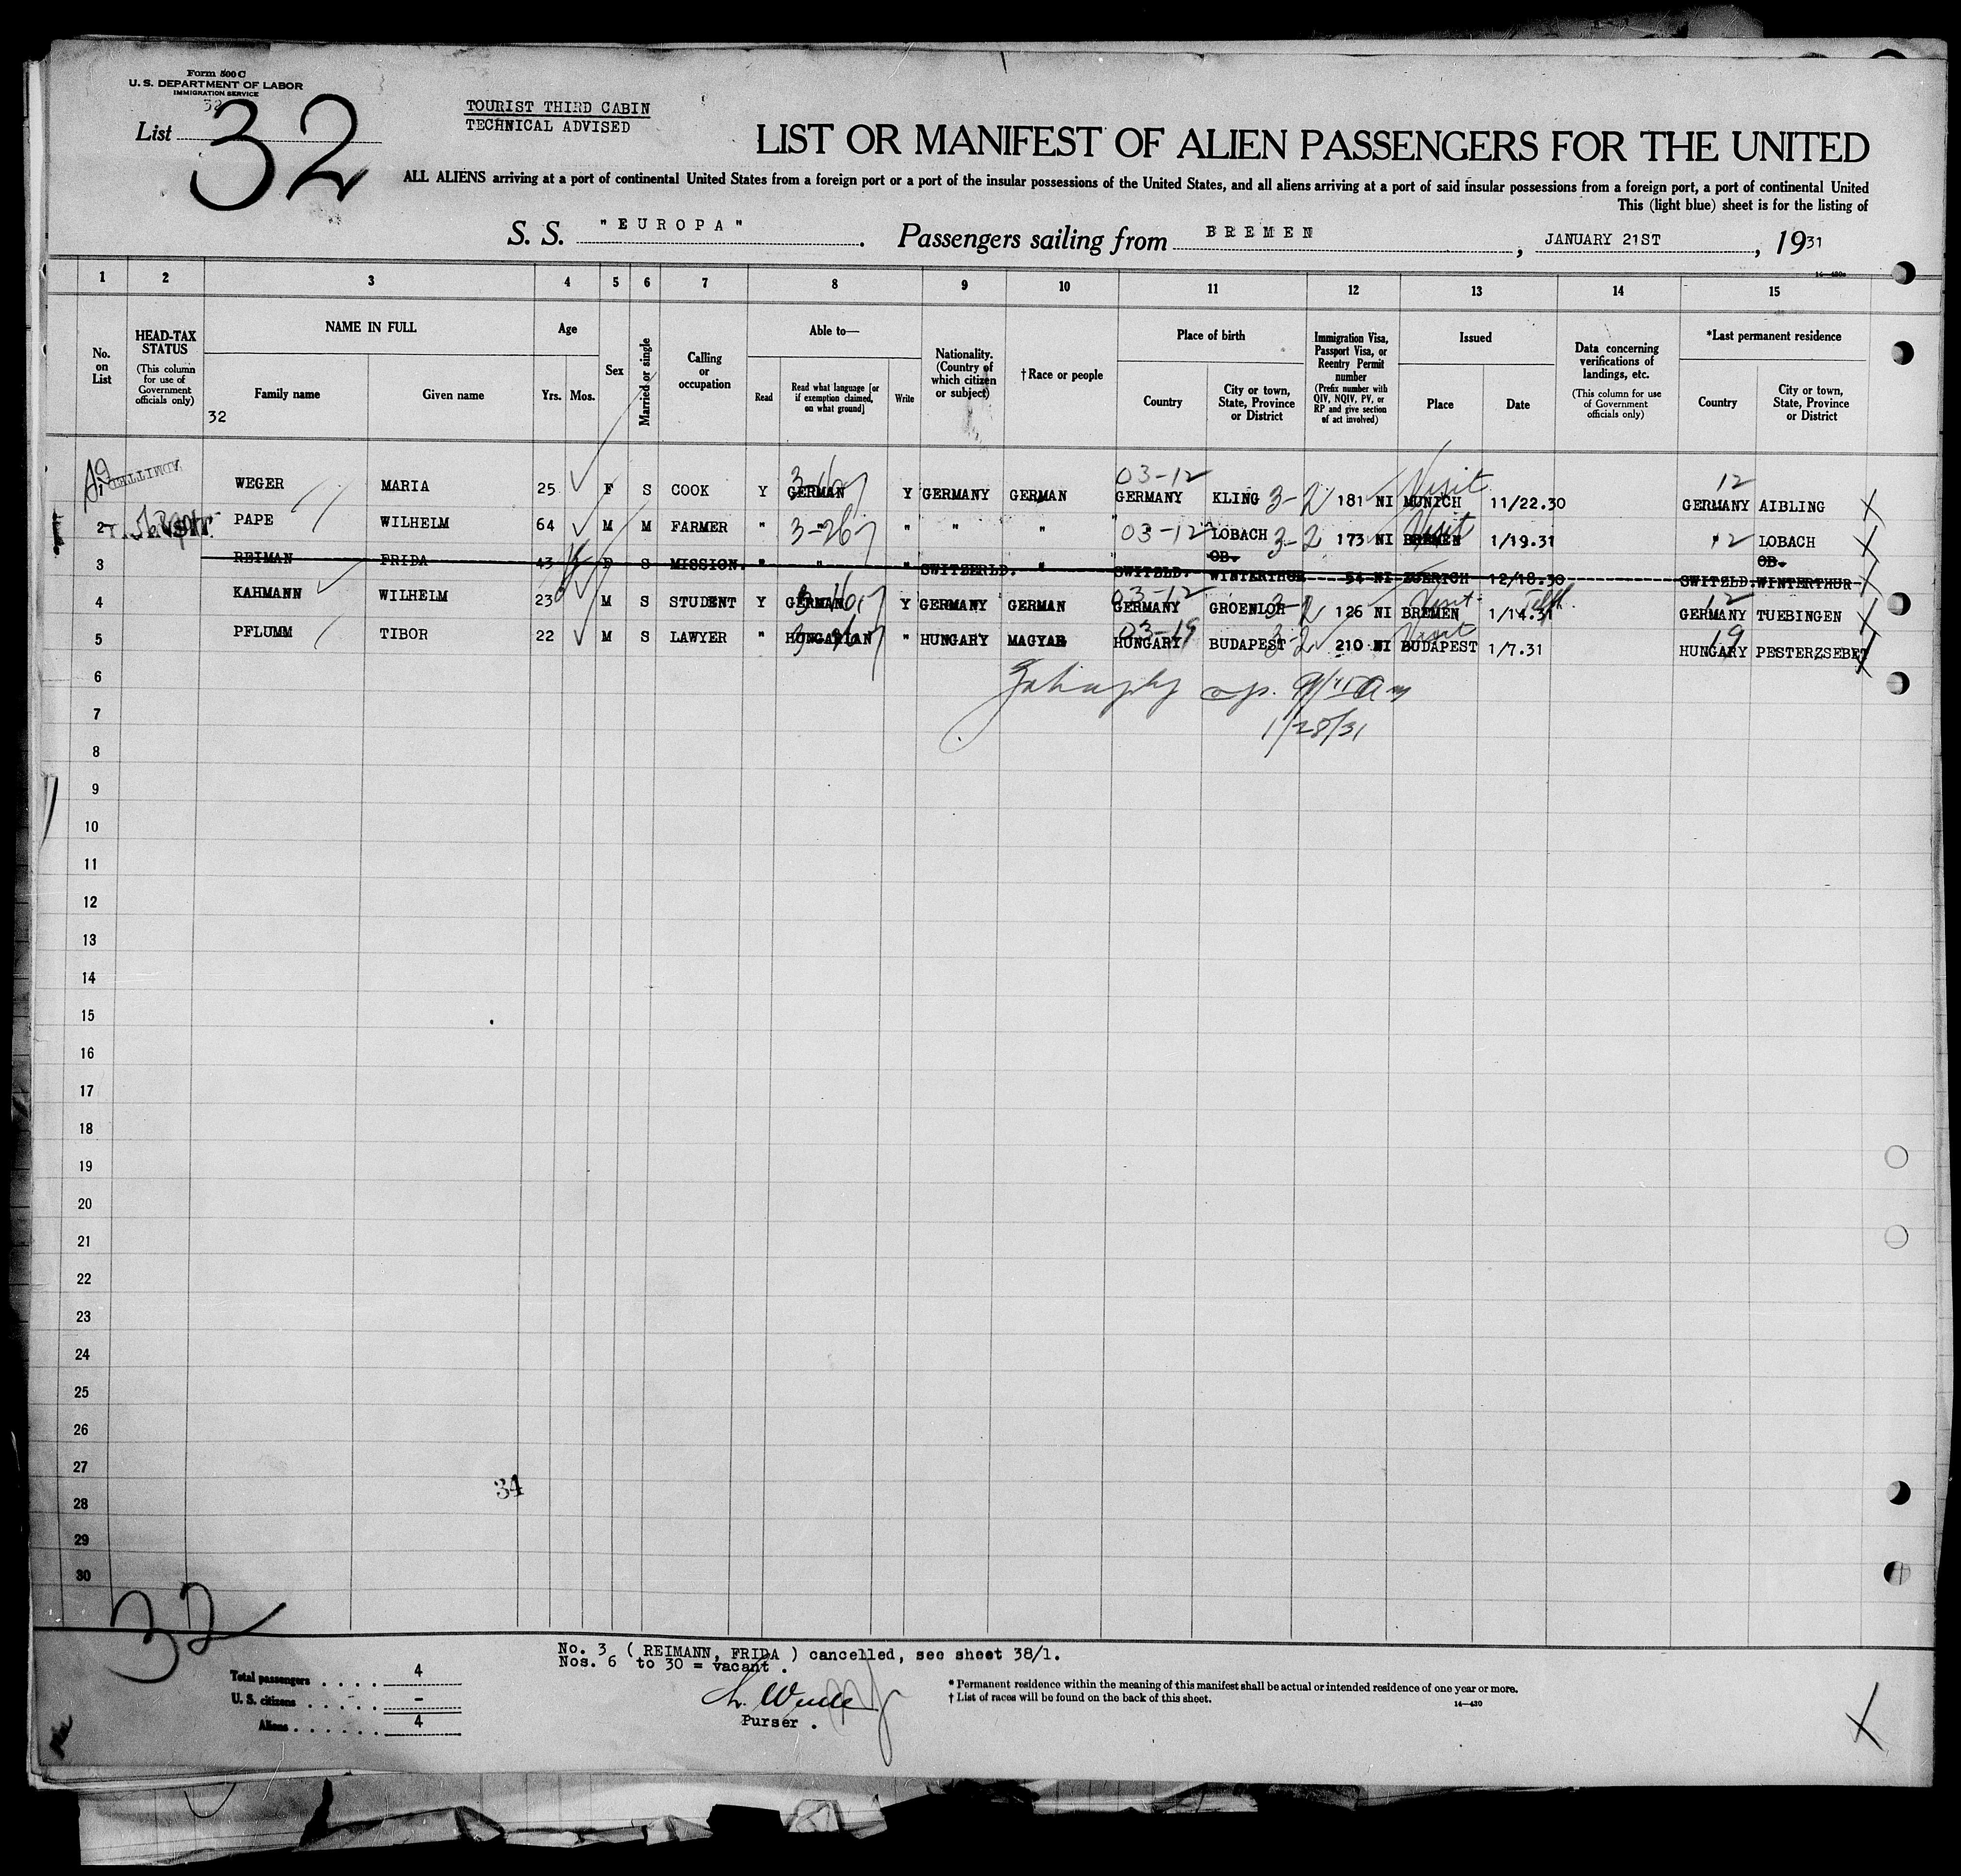 Form 500 C
U. S. DEPARTMENT OF LABOR
IMMIGRATION SERVICE
32
List 32
TOURIST THIRD CABIN
TECHNICAL ADVISED
LIST OR MANIFEST OF ALIEN PASSENGERS FOR THE UNITED
ALL ALIENS arriving at a port of continental United States from a foreign port or a port of the insular possessions of the United States, and all aliens arriving at a port of said insular possessions from a foreign port, a port of continental United
This (light blue) sheet is for the listing of
S. S. "EUROPA". Passengers sailing from BREMEN, JANUARY 21ST, 1931
14—430a
1 2 3 4 5 6 7 8 9 10 11 12 13 14 15
No. on List
HEAD-TAX STATUS (This column for use of Government officials only)
NAME IN FULL
Family name
Given name
32
Age
Yrs. Mos.
Sex
Married or single
Calling or occupation
Able to—
Read
Read what language [or if exemption claimed, on what ground]
Write
Nationality. (Country of which citizen or subject)
† Race or people
Place of birth
Country
City or town, State, Province or District
Immigration Visa, Passport Visa, or Reentry Permit number (Prefix number with QIV, NQIV, PV, or RP and give section of act involved)
Issued
Place
Date
Data concerning verifications of landings, etc. (This column for use of Government officials only)
*Last permanent residence
Country
City or town, State, Province or District
03-12 Visit 12
ADMITTED
1 WEGER MARIA 25 F S COOK Y GERMAN Y GERMANY GERMAN GERMANY KLING 3-2 181 NI MUNICH 11/22.30 GERMANY AIBLING X
2 PAPE WILHELM 64 M M FARMER " " 3-26 " " " " 03-12 LOBACH OB. 3-2 173 NI BREMEN Visit 1/19.31 " 12 LOBACH OB. X
3 REIMAN FRIDA 43 F S MISSION. " " " SWITZERLD. " SWITZLD. WINTERTHUR 54 NI ZUERICH 12/18.30 SWITZLD. WINTERTHUR
03-12 Visit 12
4 KAHMANN WILHELM 23 M S STUDENT Y GERMAN Y GERMANY GERMAN GERMANY GROENLOH 3-2 126 NI BREMEN 1/14.31 GERMANY TUEBINGEN X
03-19 Visit 19
5 PFLUMM TIBOR 22 M S LAWYER " HUNGARIAN " HUNGARY MAGYAR HUNGARY BUDAPEST 3-2 210 NI BUDAPEST 1/7.31 HUNGARY PESTERZSEBET X
6
7 1/28/31
8
9
10
11
12
13
14
15
16
17
18
19
20
21
22
23
24
25
26
27
34
28
29
30
32
No. 3 ( REIMANN, FRIDA ) cancelled, see sheet 38/1.
Nos. 6 to 30 = vacant .
Total passengers . . . . 4
U. S. citizens . . . . . –
Aliens . . . . . . 4
Purser .
* Permanent residence within the meaning of this manifest shall be actual or intended residence of one year or more.
† List of races will be found on the back of this sheet.
14—430
X